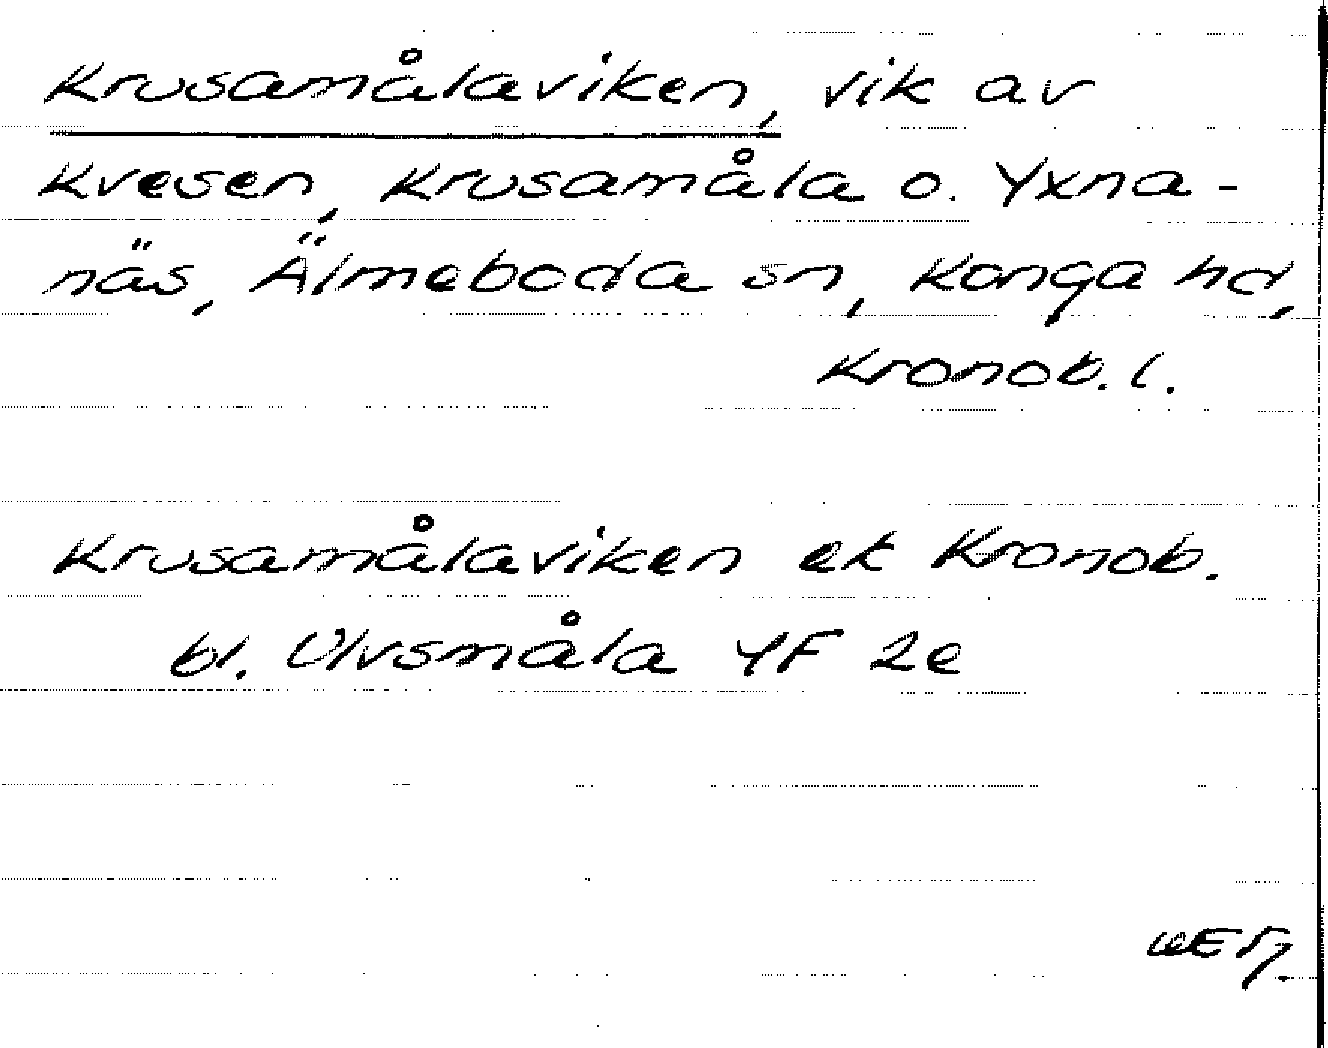 Krusamålaviken, vik av
Kvesen, Krusamåla o. Yxna-
näs, Älmeboda sn, Konga hd,
Kronob. l.
Krusamålaviken ek Kronob.
bl. Ulvsmåla 4F 2e